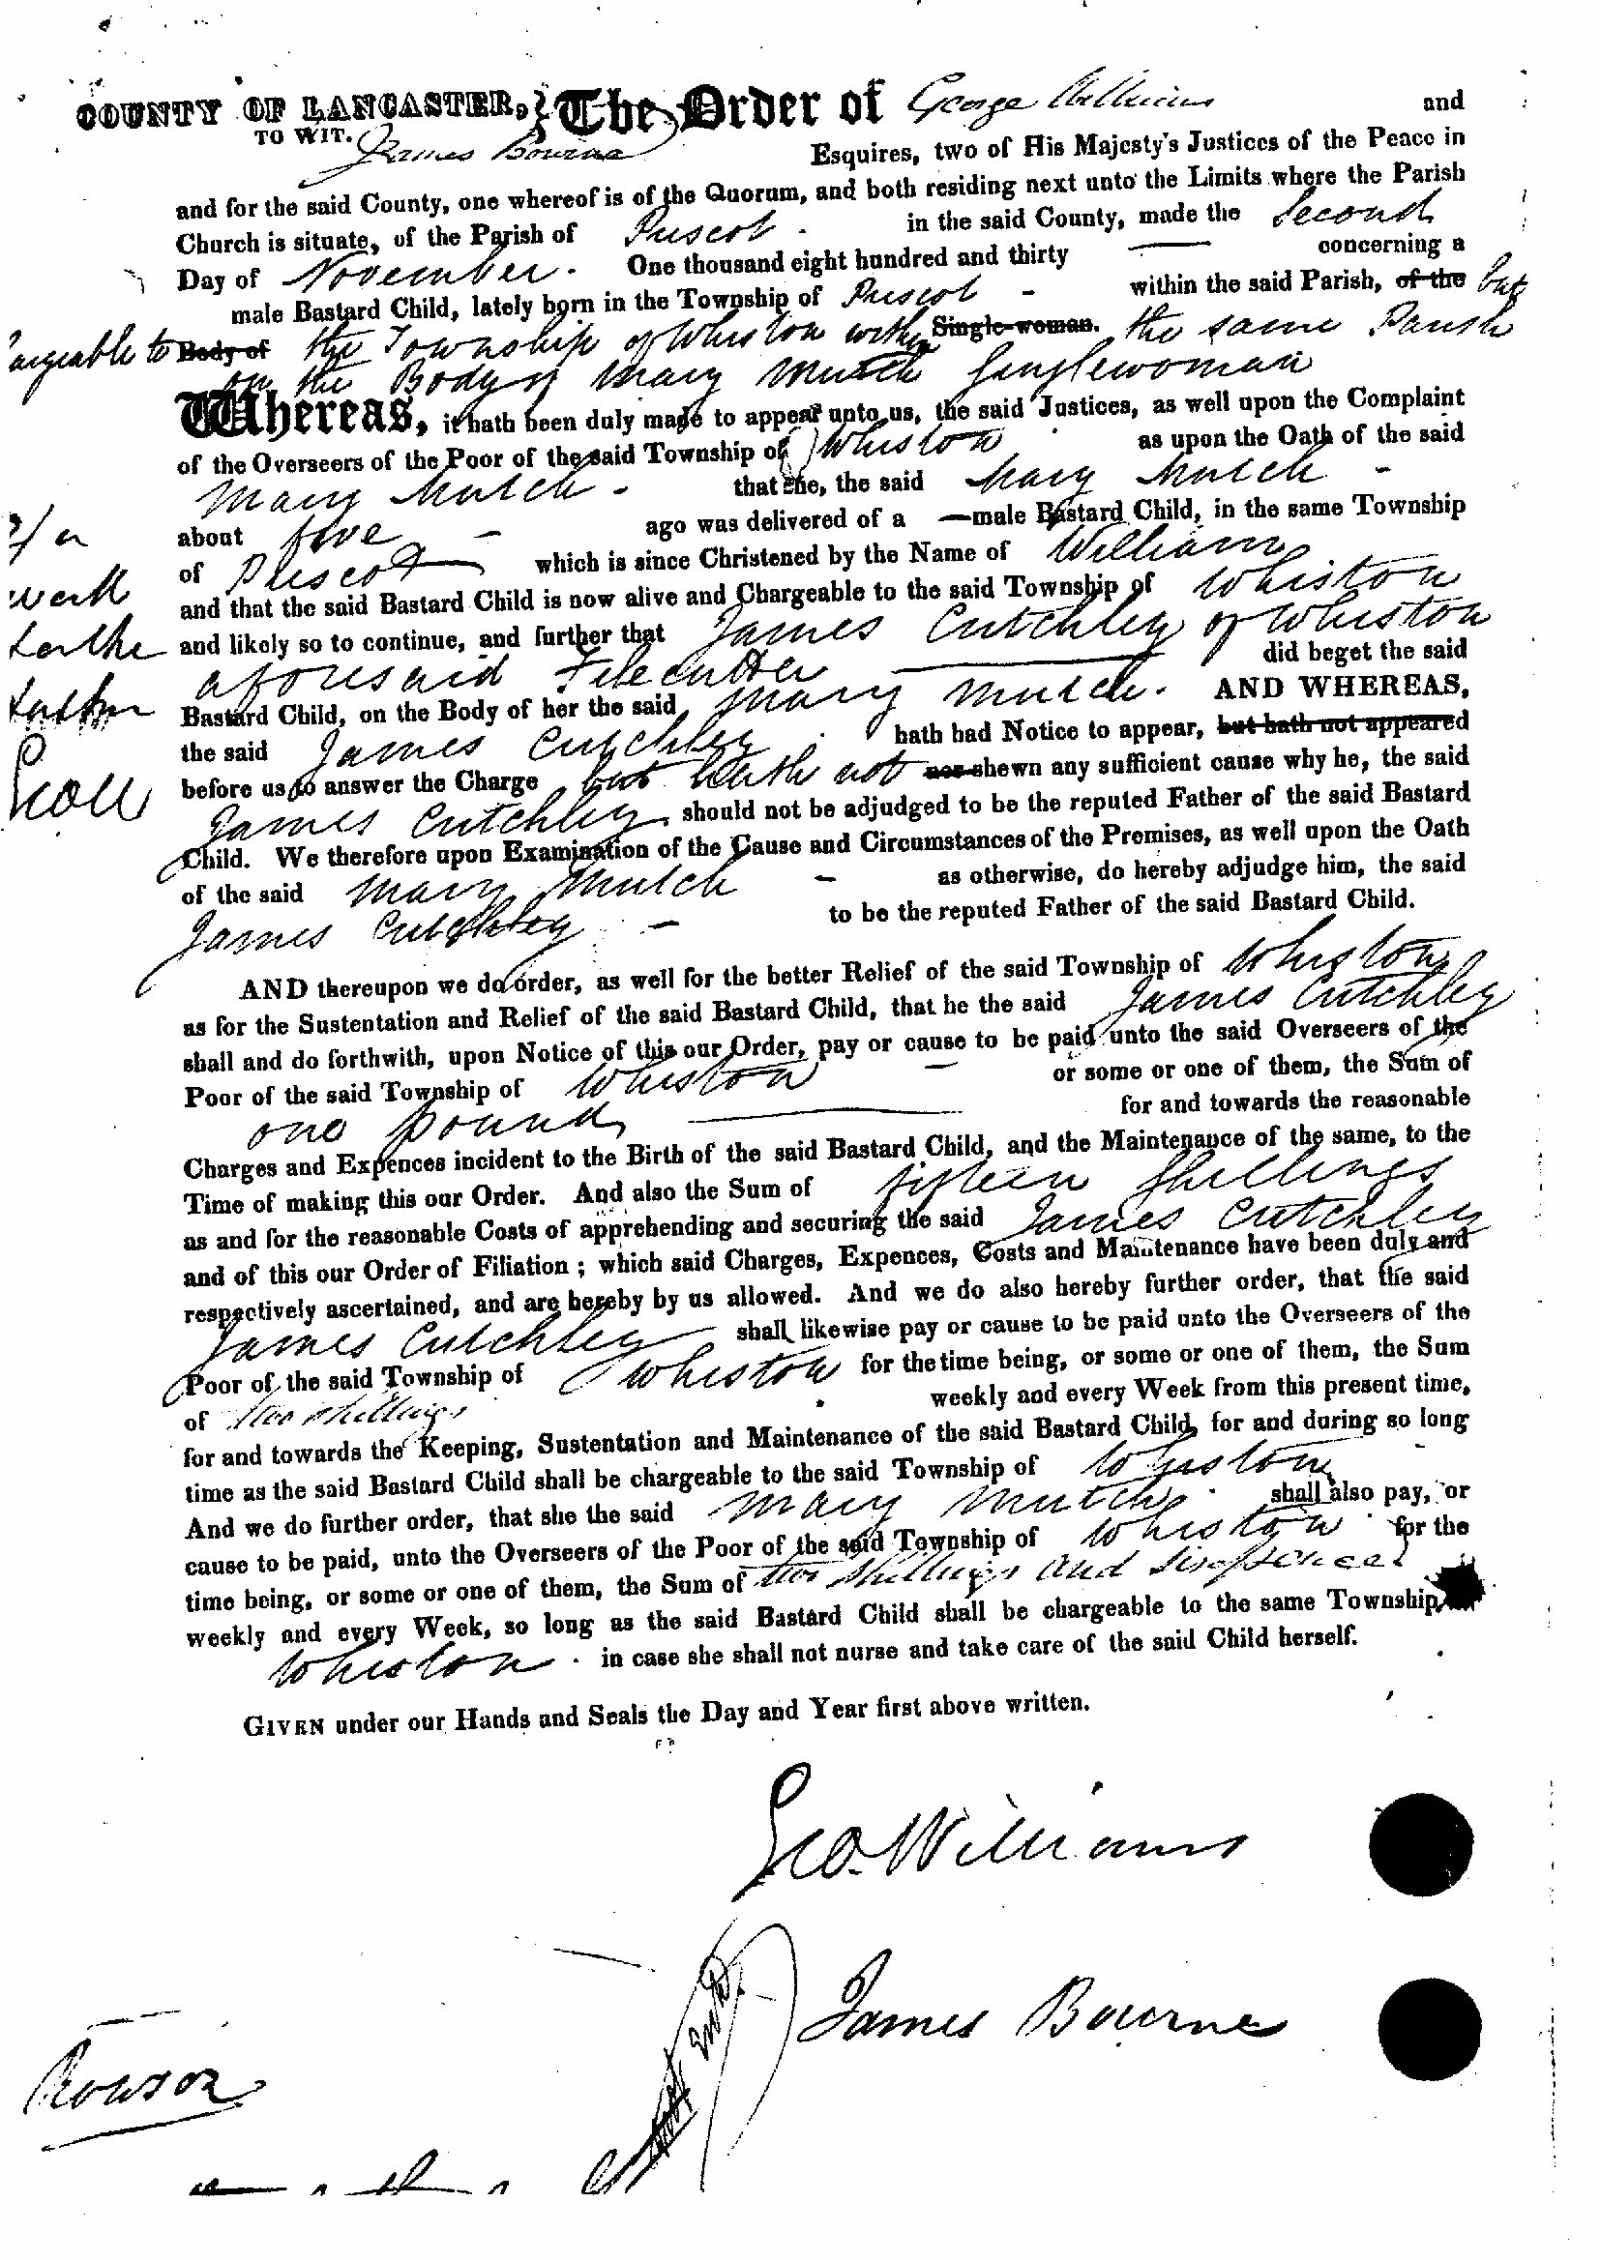 COUNTY OF LANCASTER, } The Order of George Williams and
TO WIT. James Bourne Esquires, two of His Majesty's Justices of the Peace in
and for the said County, one whereof is of the Quorum, and both residing next unto the Limits where the Parish
Church is situate, of the Parish of Prescot in the said County, made the Second
Day of November. One thousand eight hundred and thirty — concerning a
male Bastard Child, lately born in the Township of Prescot - within the said Parish, of the but
argeable to Body of the Township of Whiston within Single-woman. the same Parish
on the Body of Mary Mutch Singlewoman
Whereas, it hath been duly made to appear unto us, the said Justices, as well upon the Complaint
of the Overseers of the Poor of the said Township of Whiston as upon the Oath of the said
Mary Mutch - that she, the said Mary Mutch -
about five - ago was delivered of a —male Bastard Child, in the same Township
of Prescot which is since Christened by the Name of William
and that the said Bastard Child is now alive and Chargeable to the said Township of Whiston
and likely so to continue, and further that James Critchley of Whiston
aforesaid Filecutter — did beget the said
Bastard Child, on the Body of her the said Mary Mutch. AND WHEREAS,
the said James Critchley hath had Notice to appear, but hath not appeared
before us to answer the Charge but hath not nor shewn any sufficient cause why he, the said
James Critchley should not be adjudged to be the reputed Father of the said Bastard
Child. We therefore upon Examination of the Cause and Circumstances of the Premises, as well upon the Oath
of the said Mary Mutch - as otherwise, do hereby adjudge him, the said
James Critchley - to be the reputed Father of the said Bastard Child.
AND thereupon we do order, as well for the better Relief of the said Township of Whiston
as for the Sustentation and Relief of the said Bastard Child, that he the said James Critchley
shall and do forthwith, upon Notice of this our Order, pay or cause to be paid unto the said Overseers of the
Poor of the said Township of Whiston - or some or one of them, the Sum of
one pound — for and towards the reasonable
Charges and Expences incident to the Birth of the said Bastard Child, and the Maintenance of the same, to the
Time of making this our Order. And also the Sum of fifteen shillings
as and for the reasonable Costs of apprehending and securing the said James Critchley
and of this our Order of Filiation; which said Charges, Expences, Costs and Maintenance have been duly and
respectively ascertained, and are hereby by us allowed. And we do also hereby further order, that the said
James Critchley shall likewise pay or cause to be paid unto the Overseers of the
Poor of the said Township of Whiston for the time being, or some or one of them, the Sum
of two shillings weekly and every Week from this present time,
for and towards the Keeping, Sustentation and Maintenance of the said Bastard Child, for and during so long
time as the said Bastard Child shall be chargeable to the said Township of Whiston
And we do further order, that she the said Mary Mutch shall also pay, or
cause to be paid, unto the Overseers of the Poor of the said Township of Whiston for the
time being, or some or one of them, the Sum of two shillings and sixpence
weekly and every Week, so long as the said Bastard Child shall be chargeable to the same Township
Whiston in case she shall not nurse and take care of the said Child herself.
GIVEN under our Hands and Seals the Day and Year first above written.
Geo. Williams
James Bourne
Rowson